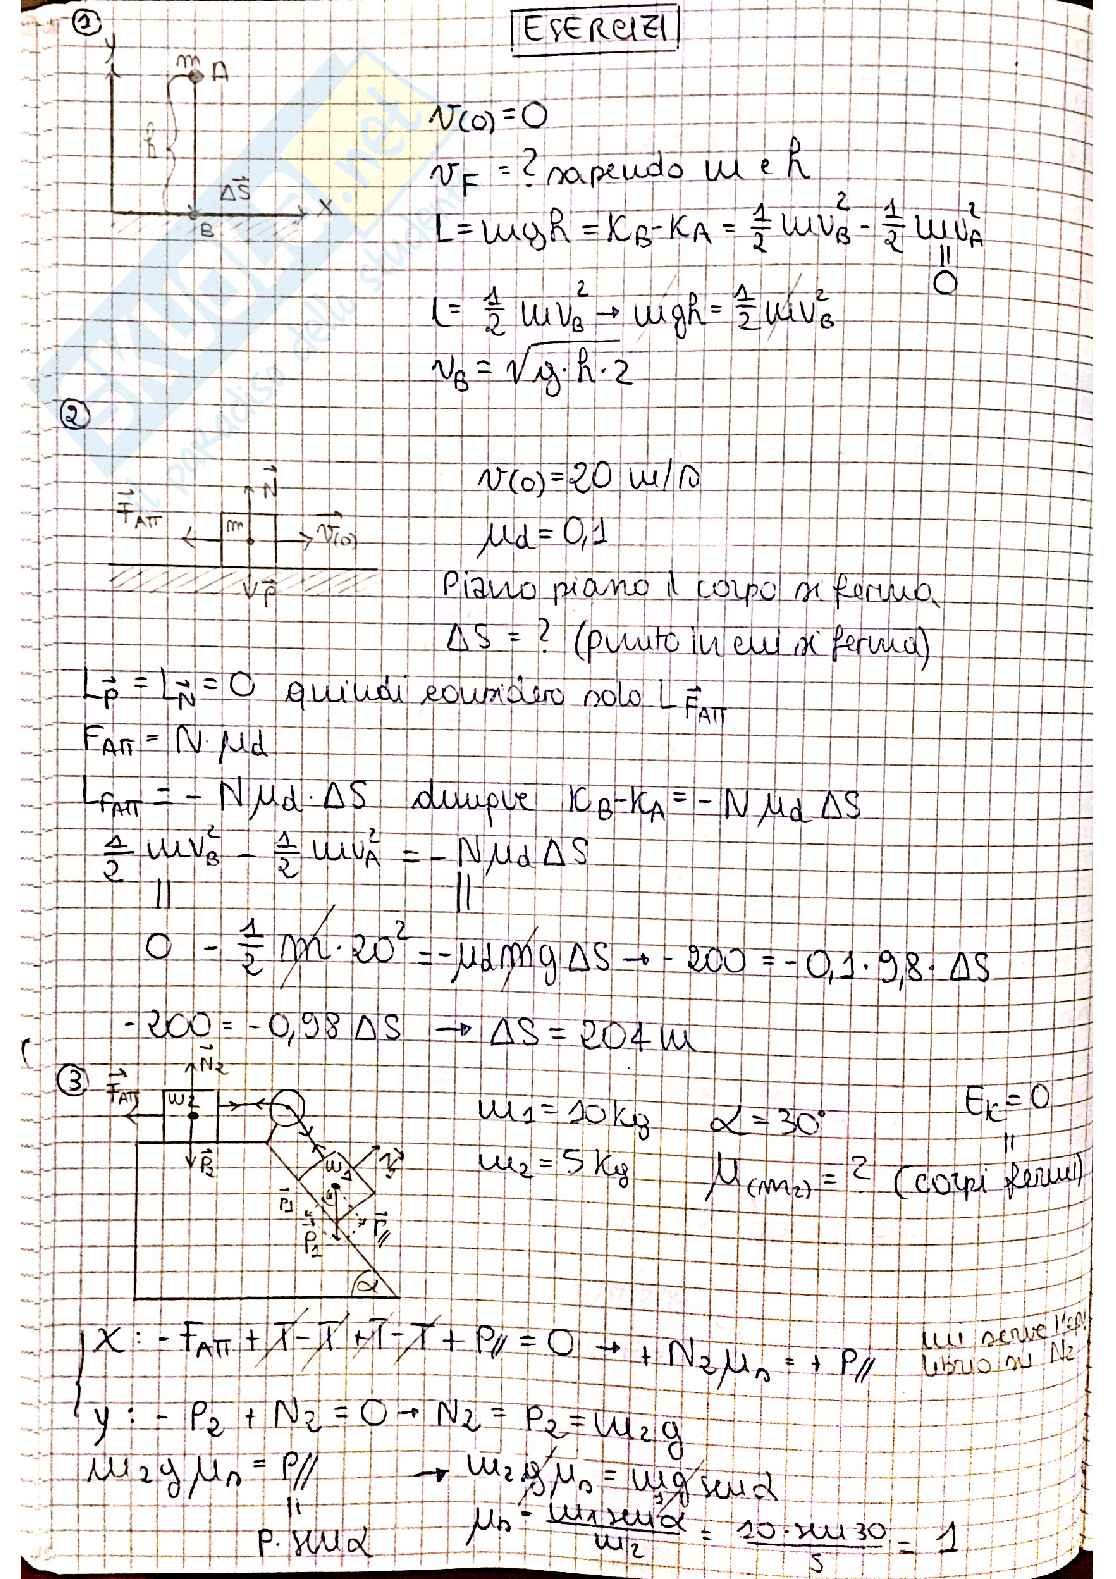 ESERCIZI
①
y
m A
h
ΔS⃗
x
B
v(0)=0
v_F = ? sapendo m e h
L = mgh = K_B - K_A = 1/2 m v_B² - 1/2 m v_A²
=
0
L = 1/2 m v_B² → mgh = 1/2 m v_B²
v_B = √g·h·2
②
N⃗
F⃗_ATT m v⃗(0)
P⃗
v(0)=20 m/s
μd = 0,1
Piano piano il corpo si ferma.
ΔS = ? (punto in cui si ferma)
L_P⃗ = L_N⃗ = 0 quindi considero solo L F⃗_ATT
F_ATT = N·μd
L_FATT = - N μd · ΔS dunque K_B - K_A = - N μd ΔS
1/2 m v_B² - 1/2 m v_A² = - N μd ΔS
= =
0 - 1/2 m · 20² = - μd m g ΔS → - 200 = - 0,1 · 9,8 · ΔS
- 200 = - 0,98 ΔS → ΔS = 204 m
③
F⃗_ATT N⃗2
m2
P⃗2
m1
P⃗//
α
m1 = 10 kg α = 30° E_K = 0
=
m2 = 5 kg μ(m2) = ? (corpi fermi)
x : - F_ATT + T - T + T - T + P// = 0 → + N2 μs = + P//
mi serve l'equi
librio su N2
y : - P2 + N2 = 0 → N2 = P2 = m2g
m2 g μs = P// → m2 g μs = m1 g sen α
=
P · sen α
μs = m1 sen α / m2 = 10 · sen 30 / 5 = 1